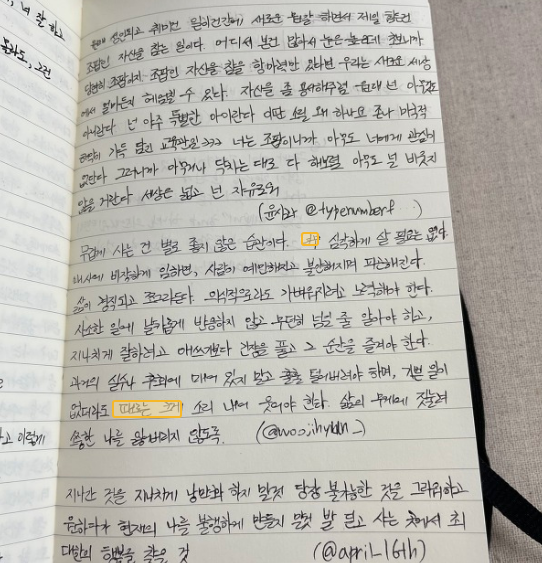 너 잘 하고
몰라도, 그런
뭔데 성인되고 취미건 일이건간에, 새로운 도전 하면서 제일 중요한
조팝인 자신을 참는 일이다. 어디서 본건 많아서 눈은 높은데 초보니까
당연히 조팝이지 조팝인 자신을 참을 항아력만 있다면 우리는 새로운 세상
에서 얼마든지 헤엄칠 수 있다. 자신을 좀 용서해주렴
아니란다 넌 아주 특별한 아이란다 이딴 소릴 왜 하나요 존나 미국적
가득 담긴 교육관임 >>> 너는 조팝이니까 아무도 너에게 관심이
없단다 그러니까 아무거나 닥치는 대로 다 해보렴 아무도 널 비웃지
않을 거란다 세상은 넓고 넌 자유로워
(윤시와 @typenumberf )
무겁게 사는 건 별로 좋지 않은 습관이다. 너무 심각하게 살 필요는 없다.
매사에 비장하게 임하면, 사람이 예민해지고 불안해지며 피곤해진다.
삶이 경직되고 쪼그라든다. 의식적으로라도 가벼워지려고 노력해야 한다.
사소한 일에 날카롭게 반응하지 않고 무던히 넘길 줄 알아야 하고,
지나치게 잘하려고 애쓰기보다 긴장을 풀고 그 순간을 즐겨야 한다.
과거의 실수나 후회에 매여 있지 말고 훌훌 털어버려야 하며, 기쁜 일이
없더라도 때로는 크게 소리 내어 웃어야 한다. 삶의 무게에 짓눌려
소중한 나를 잃어버리지 않도록. (@woojihyun_)
고 이렇게
지나간 것을 지나치게 낭만화 하지 말것 당장 불가능한 것을 그리워하고
원하다가 현재의 나를 불행하게 만들지 말것 발 딛고 사는 곳에서 최
대한의 행복을 찾을 것 (@april_16th)